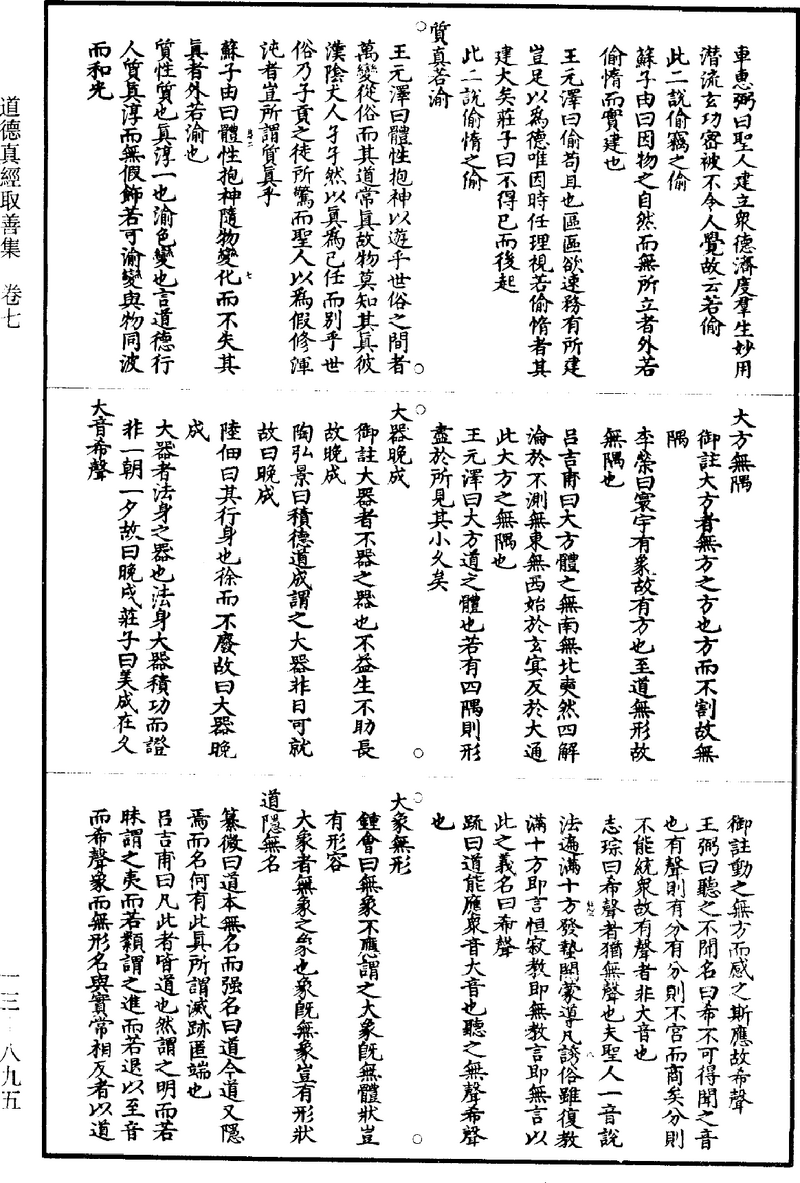 車惠弼曰聖人建立衆德濟度羣生妙用
潛流玄功密被不令人覺故云若偷
此二說偷竊之偷
蘇子由曰因物之自然而無所立者外若
偷惰而實建也
王元澤曰偷苟且也區區欲速務有所建
豈足以為德唯因時任理視若偷惰者其
建大矣莊子曰不得已而後起
此二說偷惰之偷
質真若渝
王元澤曰體性抱神以遊乎世俗之間者
萬變從俗而其道常真故物莫知其真彼
漢陰丈人孑孑然以真為己任而別乎世
俗乃子貢之徒所驚而聖人以為假修渾
沌者豈所謂質真乎
蘇子由曰體性抱神隨物變化而不失其
真者外若渝也
質性質也真淳一也渝色變也言道德行
人質真淳而無假飾若可渝變與物同波
而和光
大方無隅
御註大方者無方之方也方而不割故無
隅
李榮曰寰宇有象故有方也至道無形故
無隅也
呂吉甫曰大方體之無南無北奭然四解
淪於不測無東無西始於玄冥反於大通
此大方之無隅也
王元澤曰大方道之體也若有四隅則形
盡於所見其小久矣
大器晚成
御註大器者不器之器也不益生不助長
故晚成
陶弘景曰積德道成謂之大器非日可就
故曰晚成
陸佃曰其行身也徐而不廢故曰大器晚
成
大器者法身之器也法身大器積功而證
非一朝一夕故曰晚成莊子曰美成在久
大音希聲
御註動之無方而感之斯應故希聲
王弼曰聽之不聞名曰希不可得聞之音
也有聲則有分有分則不宮而商矣分則
不能統衆故有聲者非大音也
志琮曰希聲者猶無聲也夫聖人一音說
法遍滿十方發蟄開蒙導凡誘俗雖復教
滿十方即言恒寂教即無教言即無言以
此之義名曰希聲
䟽曰道能應衆音大音也聽之無聲希聲
也
大象無形
鍾會曰無象不應謂之大象既無體狀豈
有形容
大象者無象之象也象既無象豈有形狀
道隱無名
纂微曰道本無名而强名曰道今道又隱
焉而名何有此真所謂滅跡匿端也
呂吉甫曰凡此者皆道也然謂之明而若
昧謂之夷而若纇謂之進而若退以至音
而希聲象而無形名與實常相反者以道
道德真經取善集　卷七
一三—八九五